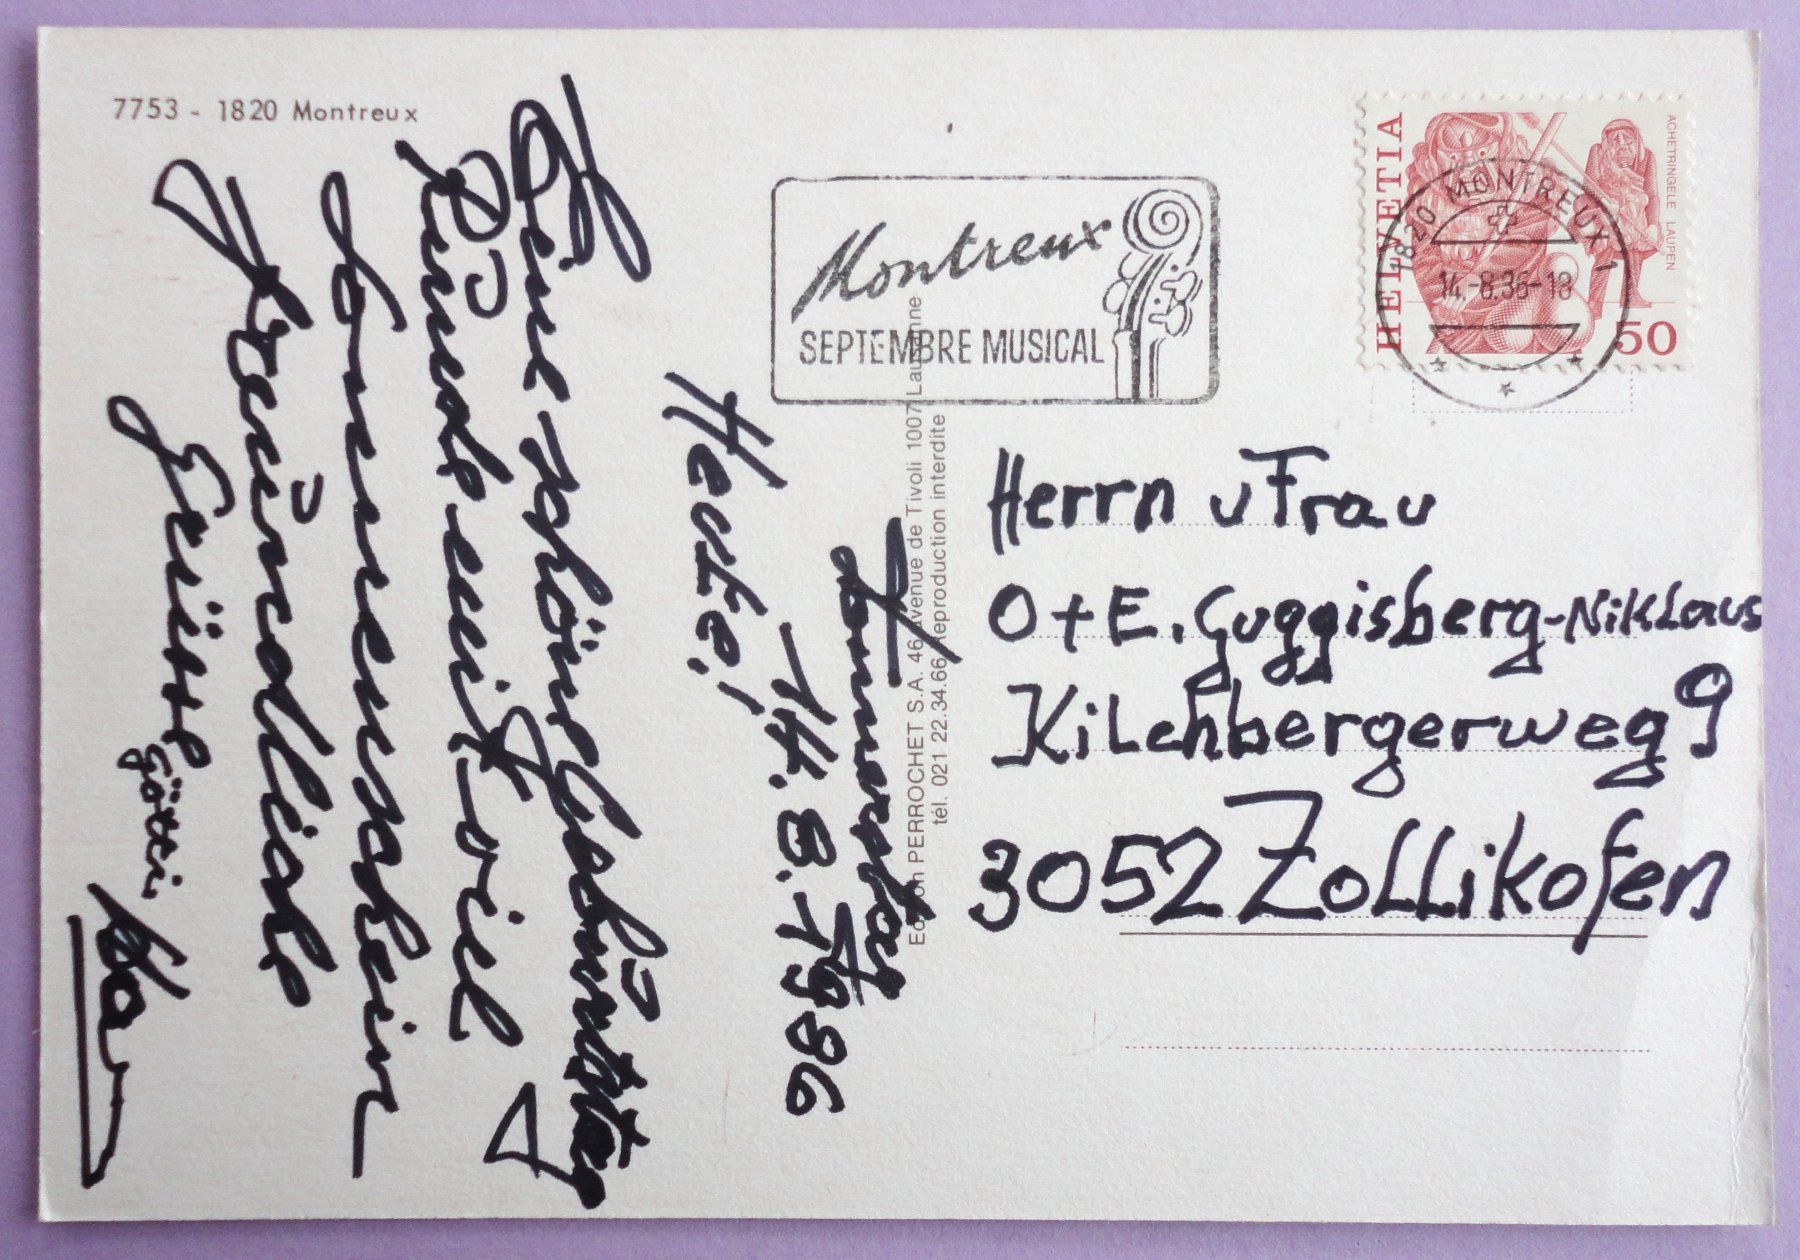 7753 - 1820 Montreux
Montreux
SEPTEMBRE MUSICAL
HELVETIA
ACHETRINGELE LAUPEN
50
1820 MONTREUX 1
14.-8.86-18
Edition PERROCHET S.A. 46 avenue de Tivoli 1007 Lausanne
tél. 021 22.34.66 Reproduction interdite
Donnerstag
14.8.1986
Heute!
Eine schöne Geburtstag
mit viel
Sonnenschein
Freundliche
Grüsse
Götti
Herrn u Frau
O + E. Guggisberg-Niklaus
Kilchbergerweg 9
3052 Zollikofen